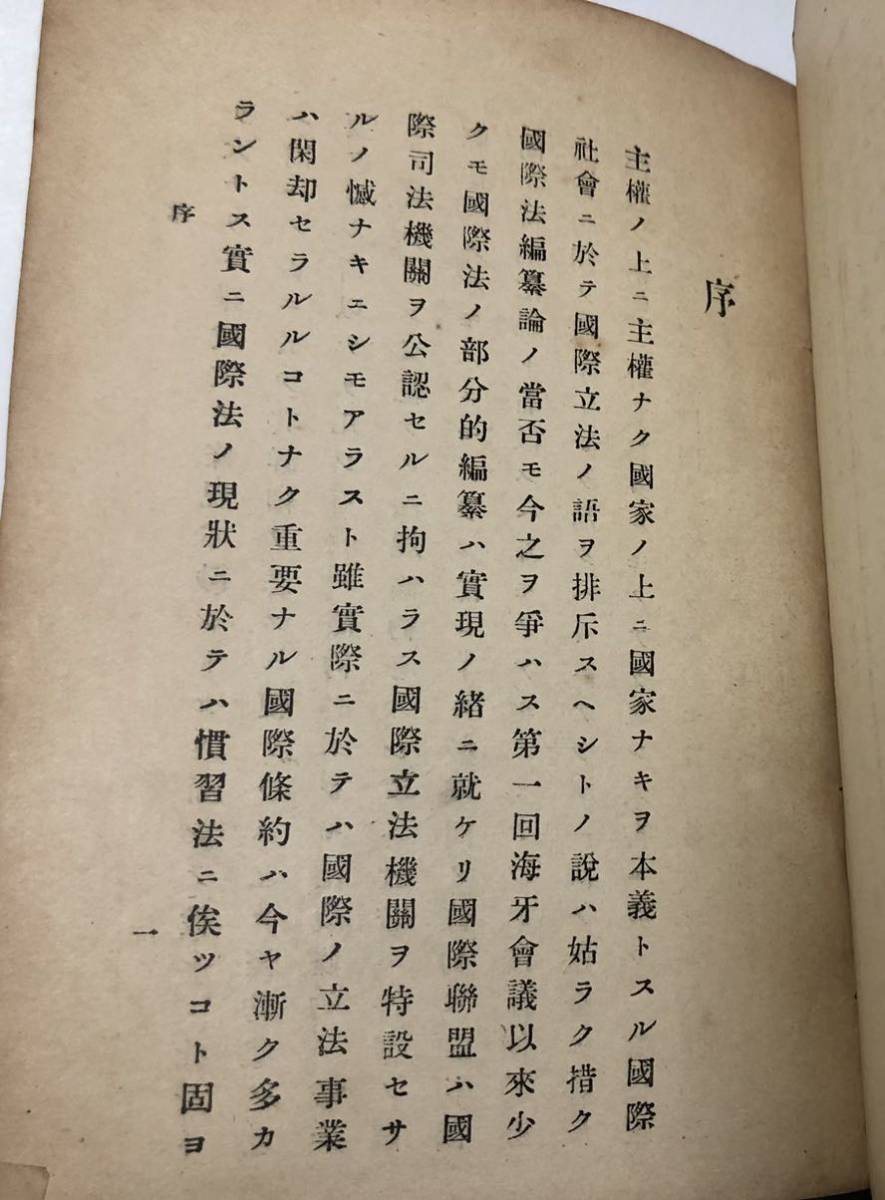 序
主權ノ上ニ主權ナク國家ノ上ニ國家ナキヲ本義トスル國際
社會ニ於テ國際立法ノ語ヲ排斥スヘシトノ說ハ姑ラク措ク
國際法編纂論ノ當否モ今之ヲ爭ハス第一回海牙會議以來少
クモ國際法ノ部分的編纂ハ實現ノ緒ニ就ケリ國際聯盟ハ國
際司法機關ヲ公認セルニ拘ハラス國際立法機關ヲ特設セサ
ルノ憾ナキニシモアラスト雖實際ニ於テハ國際ノ立法事業
ハ閑却セラルルコトナク重要ナル國際條約ハ今ヤ漸ク多カ
ラントス實ニ國際法ノ現狀ニ於テハ慣習法ニ俟ツコト固ヨ
序
一